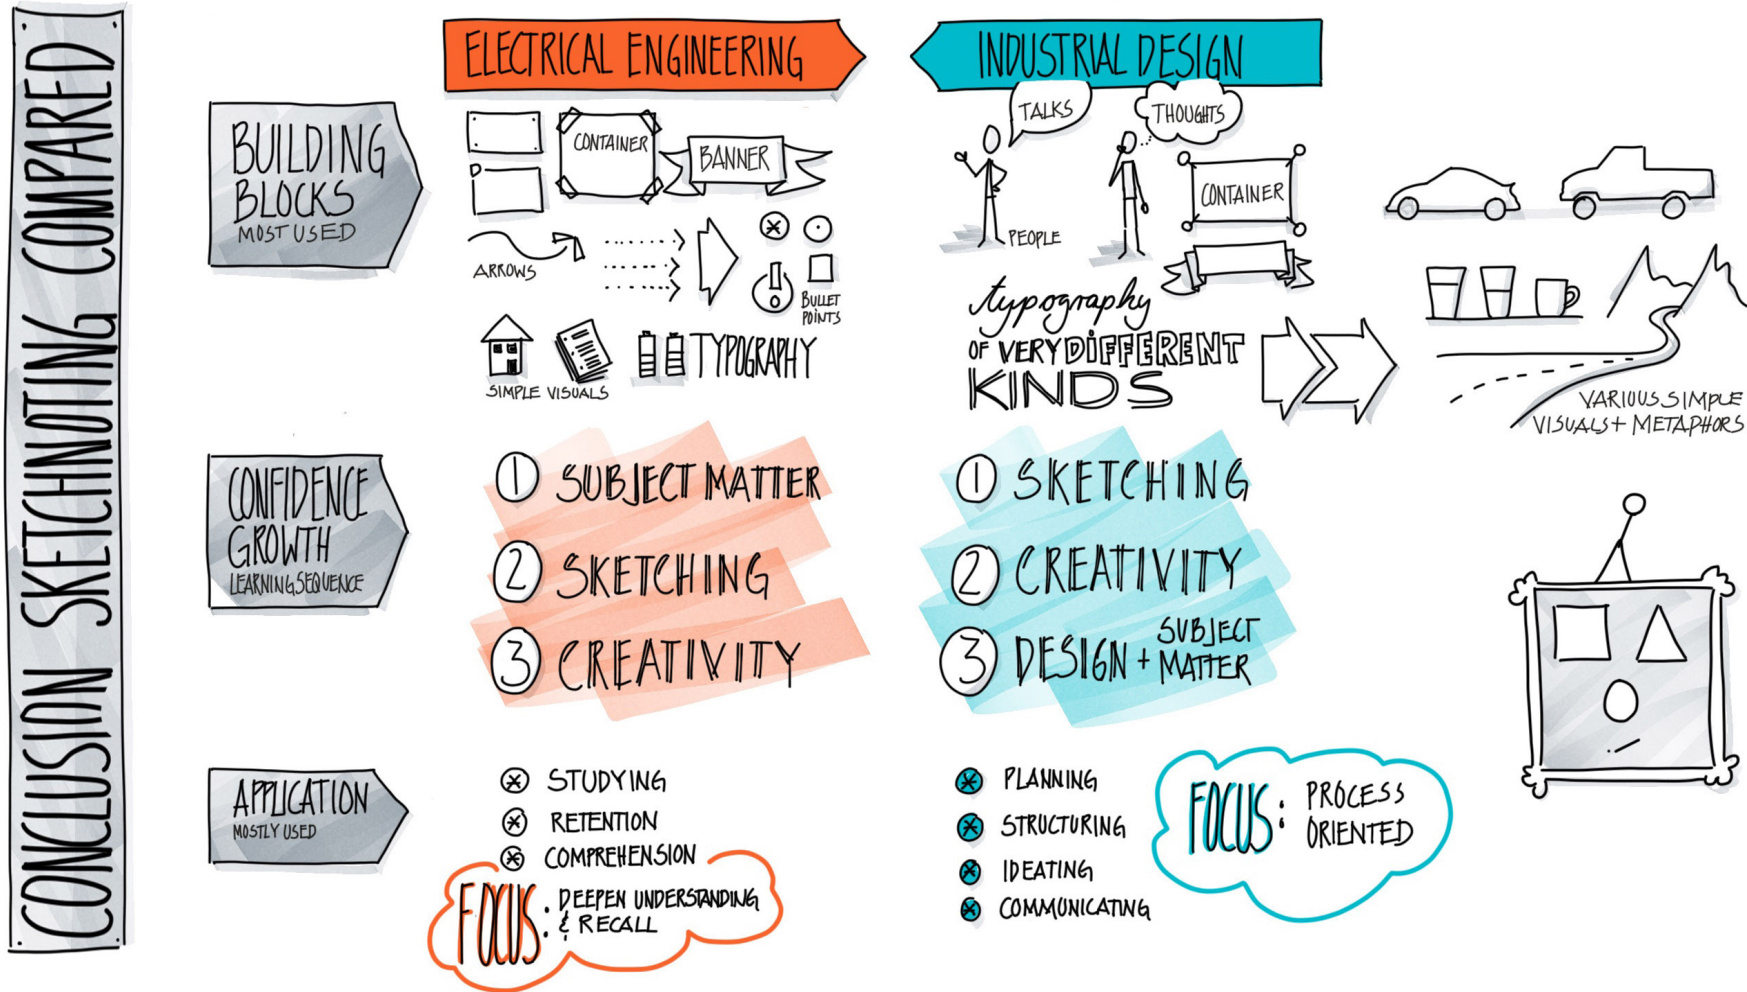 CONCLUSION SKETCHNOTING COMPARED
ELECTRICAL ENGINEERING
INDUSTRIAL DESIGN
BUILDING
BLOCKS
MOST USED
CONTAINER
BANNER
ARROWS
BULLET
POINTS
SIMPLE VISUALS
TYPOGRAPHY
TALKS
THOUGHTS
PEOPLE
CONTAINER
typography
OF VERY DIFFERENT
KINDS
VARIOUS SIMPLE
VISUALS + METAPHORS
CONFIDENCE
GROWTH
LEARNING SEQUENCE
1 SUBJECT MATTER
2 SKETCHING
3 CREATIVITY
1 SKETCHING
2 CREATIVITY
3 DESIGN + SUBJECT
MATTER
APPLICATION
MOSTLY USED
STUDYING
RETENTION
COMPREHENSION
FOCUS: DEEPEN UNDERSTANDING
& RECALL
PLANNING
STRUCTURING
IDEATING
COMMUNICATING
FOCUS: PROCESS
ORIENTED